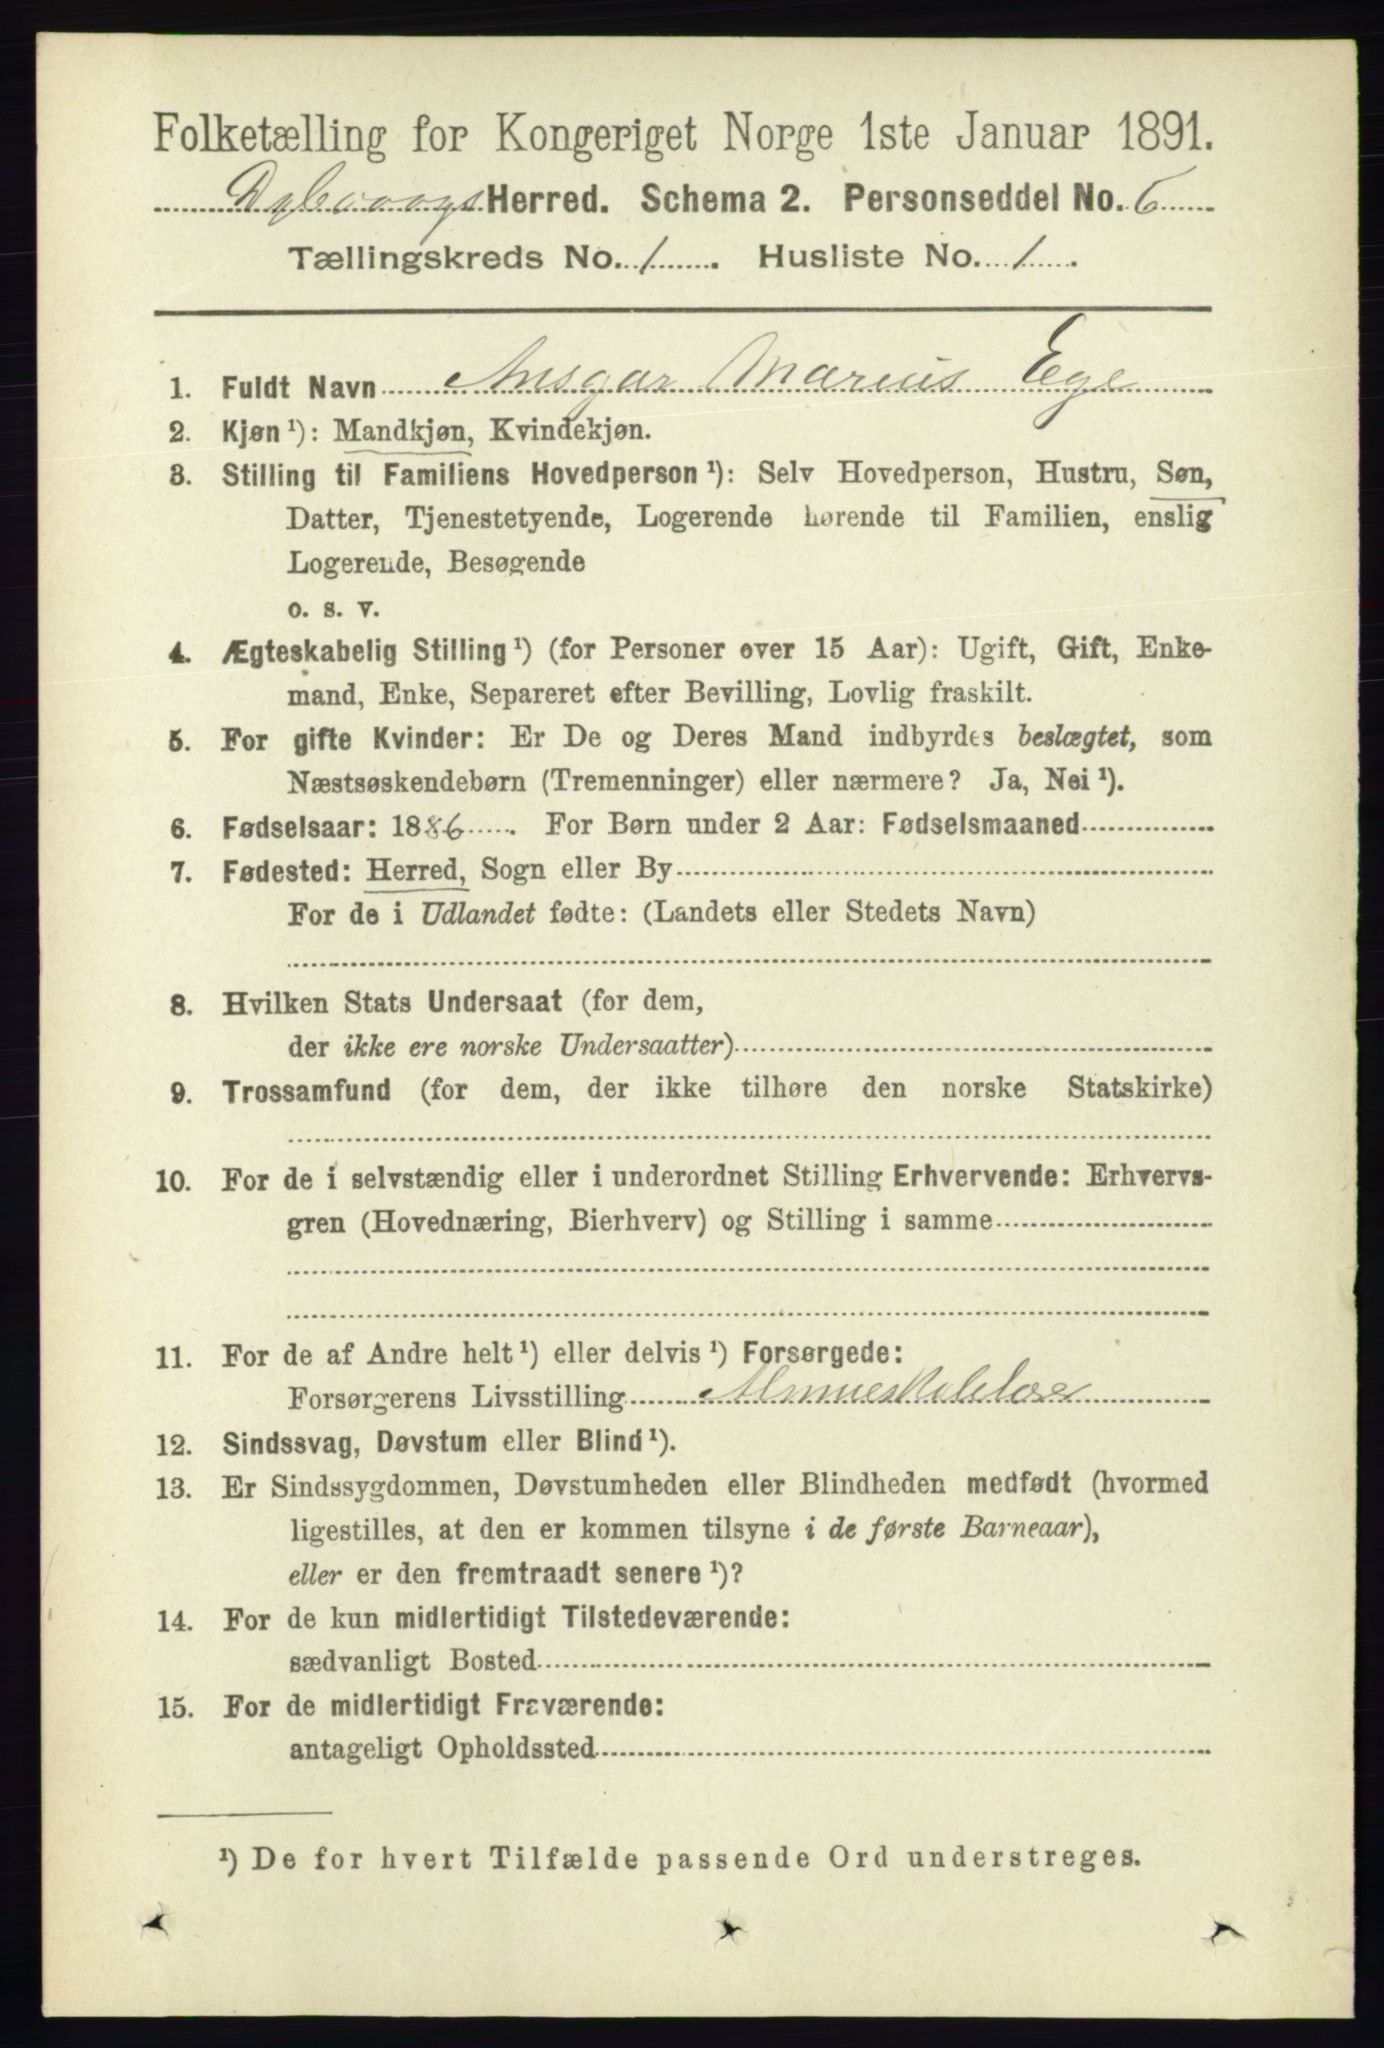 Folketælling for Kongeriget Norge 1ste Januar 1891.
Dybvaags Herred. Schema 2. Personseddel No. 6
Tællingskreds No. 1. Husliste No. 1.
1. Fuldt Navn Ansgar Marius Ege
2. Kjøn ¹): Mandkjøn, Kvindekjøn.
3. Stilling til Familiens Hovedperson ¹): Selv Hovedperson, Hustru, Søn,
Datter, Tjenestetyende, Logerende hørende til Familien, enslig
Logerende, Besøgende
o. s. v.
4. Ægteskabelig Stilling ¹) (for Personer over 15 Aar): Ugift, Gift, Enke-
mand, Enke, Separeret efter Bevilling, Lovlig fraskilt.
5. For gifte Kvinder: Er De og Deres Mand indbyrdes beslægtet, som
Næstsøskendebørn (Tremenninger) eller nærmere? Ja, Nei ¹).
6. Fødselsaar: 1886. For Børn under 2 Aar: Fødselsmaaned
7. Fødested: Herred, Sogn eller By
For de i Udlandet fødte: (Landets eller Stedets Navn)
8. Hvilken Stats Undersaat (for dem,
der ikke ere norske Undersaatter)
9. Trossamfund (for dem, der ikke tilhøre den norske Statskirke)
10. For de i selvstændig eller i underordnet Stilling Erhvervende: Erhvervs-
gren (Hovednæring, Bierhverv) og Stilling i samme
11. For de af Andre helt ¹) eller delvis ¹) Forsørgede:
Forsørgerens Livsstilling Almueskolelærer
12. Sindssvag, Døvstum eller Blind ¹).
13. Er Sindssygdommen, Døvstumheden eller Blindheden medfødt (hvormed
ligestilles, at den er kommen tilsyne i de første Barneaar),
eller er den fremtraadt senere ¹)?
14. For de kun midlertidigt Tilstedeværende:
sædvanligt Bosted
15. For de midlertidigt Fraværende:
antageligt Opholdssted
¹) De for hvert Tilfælde passende Ord understreges.